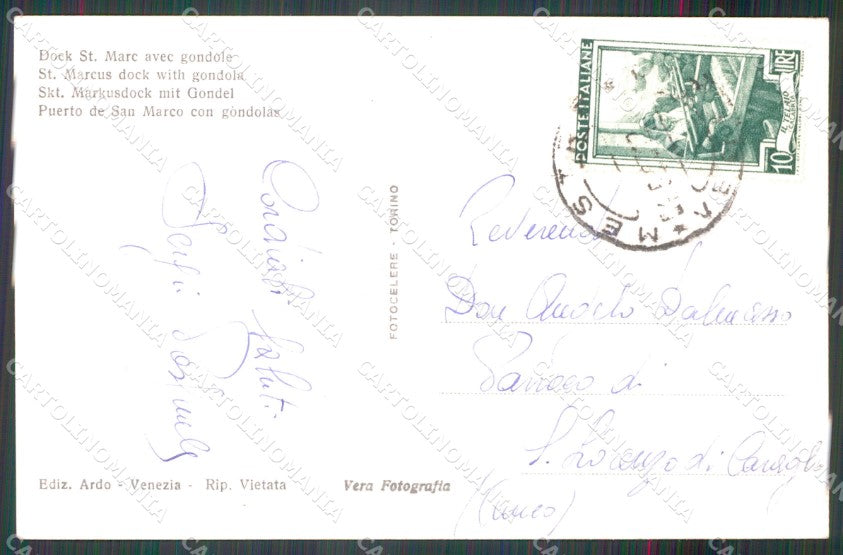 Dock St. Marc avec gondole
St. Marcus dock with gondola
Skt. Markusdock mit Gondel
Puerto de San Marco con gondolas
POSTE ITALIANE
LIRE
10
MES
FOTOCELERE - TORINO
Cordiali saluti
Reverendo
Don Angelo Dalmasso
Parroco di
S. Lorenzo di
(Cuneo)
Ediz. Ardo - Venezia - Rip. Vietata
Vera Fotografia
CARTOLINOMANIA